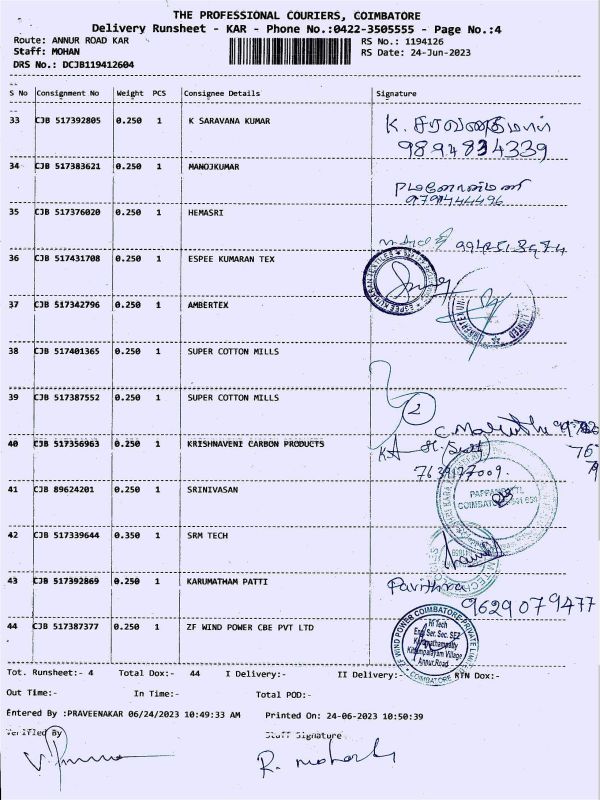 THE PROFESSIONAL COURIERS, COIMBATORE
Delivery Runsheet - KAR - Phone No.:0422-3505555 - Page No.:4
Route: ANNUR ROAD KAR RS No.: 1194126
Staff: MOHAN RS Date: 24-Jun-2023
DRS No.: DCJB119412604
S No Consignment No Weight PCS Consignee Details Signature
33 CJB 517392805 0.250 1 K SARAVANA KUMAR K. சரவணகுமார்
9894834339
34 CJB 517383621 0.250 1 MANOJKUMAR
9791444496
35 CJB 517376020 0.250 1 HEMASRI
36 CJB 517431708 0.250 1 ESPEE KUMARAN TEX
37 CJB 517342796 0.250 1 AMBERTEX
38 CJB 517401365 0.250 1 SUPER COTTON MILLS
39 CJB 517387552 0.250 1 SUPER COTTON MILLS 2
40 CJB 517356963 0.250 1 KRISHNAVENI CARBON PRODUCTS
7639177009.
41 CJB 89624201 0.250 1 SRINIVASAN
42 CJB 517339644 0.350 1 SRM TECH
43 CJB 517392869 0.250 1 KARUMATHAM PATTI Pavithra
9629079477
44 CJB 517387377 0.250 1 ZF WIND POWER CBE PVT LTD
ZF WIND POWER COIMBATORE PRIVATE LIMITED
Hi Tech
Eng Ser. Sec. SEZ
Karumathampatty
Kittampalayam Village
Annur Road
COIMBATORE
Tot. Runsheet:- 4 Total Dox:- 44 I Delivery:- II Delivery:- RTN Dox:-
Out Time:- In Time:- Total POD:-
Entered By :PRAVEENAKAR 06/24/2023 10:49:33 AM Printed On: 24-06-2023 10:50:39
Verified By Staff Signature
R. mohan